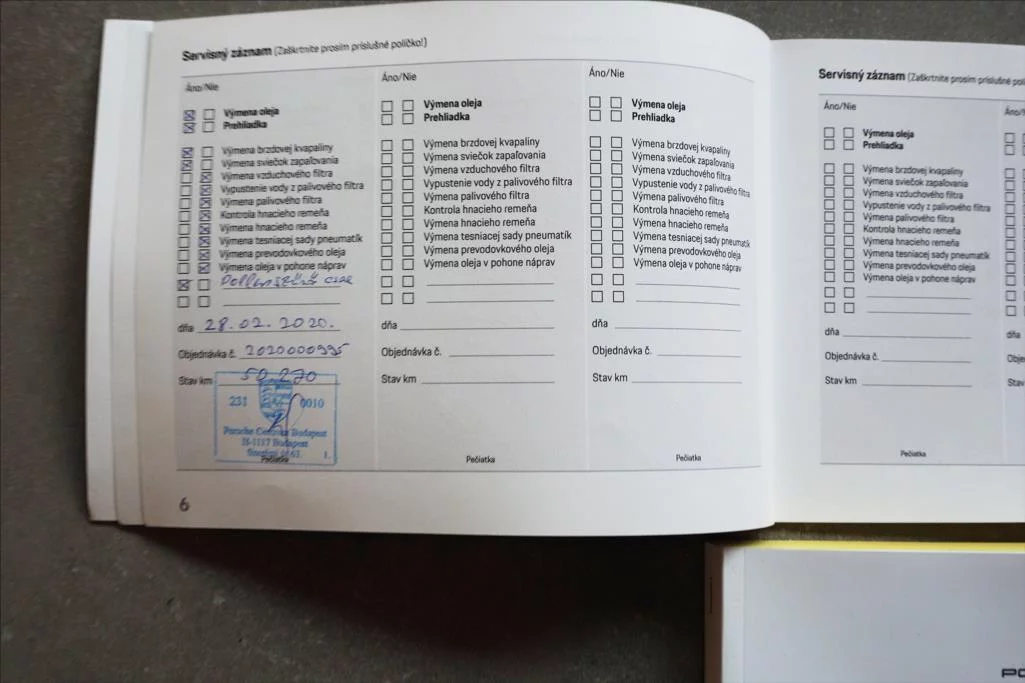 Servisný záznam (Zaškrtnite prosím príslušné políčko!)
Áno/Nie
Výmena oleja
Prehliadka
Výmena brzdovej kvapaliny
Výmena sviečok zapaľovania
Výmena vzduchového filtra
Vypustenie vody z palivového filtra
Výmena palivového filtra
Kontrola hnacieho remeňa
Výmena hnacieho remeňa
Výmena tesniacej sady pneumatík
Výmena prevodovkového oleja
Výmena oleja v pohone náprav
dňa 28.02.2020.
Objednávka č. 2020000995
Stav km 50 270
231 0010
Porsche Centrum Budapest
H-1117 Budapest
1.
Pečiatka
Áno/Nie
Výmena oleja
Prehliadka
Výmena brzdovej kvapaliny
Výmena sviečok zapaľovania
Výmena vzduchového filtra
Vypustenie vody z palivového filtra
Výmena palivového filtra
Kontrola hnacieho remeňa
Výmena hnacieho remeňa
Výmena tesniacej sady pneumatík
Výmena prevodovkového oleja
Výmena oleja v pohone náprav
dňa
Objednávka č.
Stav km
Pečiatka
Áno/Nie
Výmena oleja
Prehliadka
Výmena brzdovej kvapaliny
Výmena sviečok zapaľovania
Výmena vzduchového filtra
Vypustenie vody z palivového filtra
Výmena palivového filtra
Kontrola hnacieho remeňa
Výmena hnacieho remeňa
Výmena tesniacej sady pneumatík
Výmena prevodovkového oleja
Výmena oleja v pohone náprav
dňa
Objednávka č.
Stav km
Pečiatka
6
Servisný záznam (Zaškrtnite prosím príslušné
Áno/Nie
Výmena oleja
Prehliadka
Výmena brzdovej kvapaliny
Výmena sviečok zapaľovania
Výmena vzduchového filtra
Vypustenie vody z palivového filtra
Výmena palivového filtra
Kontrola hnacieho remeňa
Výmena hnacieho remeňa
Výmena tesniacej sady pneumatík
Výmena prevodovkového oleja
Výmena oleja v pohone náprav
dňa
Objednávka č.
Stav km
Pečiatka
dňa